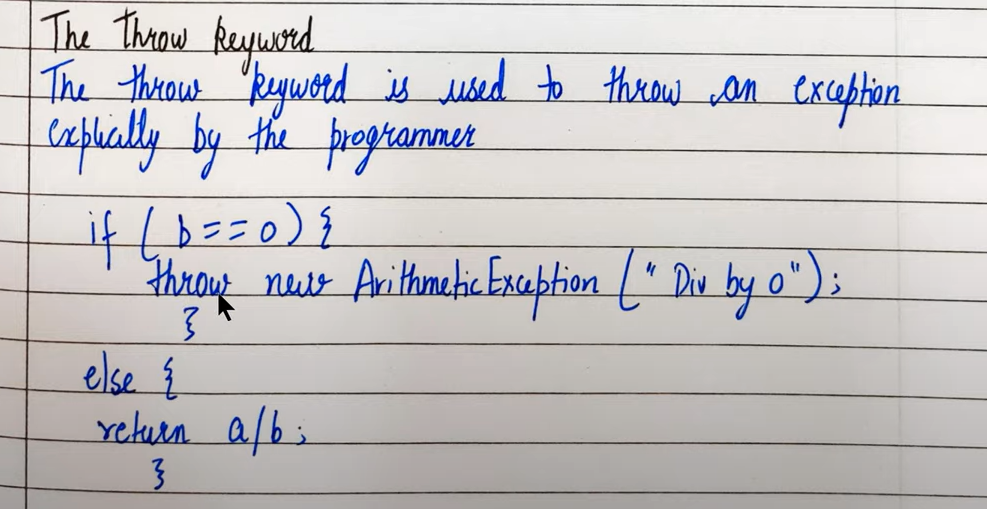 The throw keyword
The throw keyword is used to throw an exception
explically by the programmer
if ( b==0) {
throw new ArithmeticException ("Div by 0");
}
else {
return a/b;
}